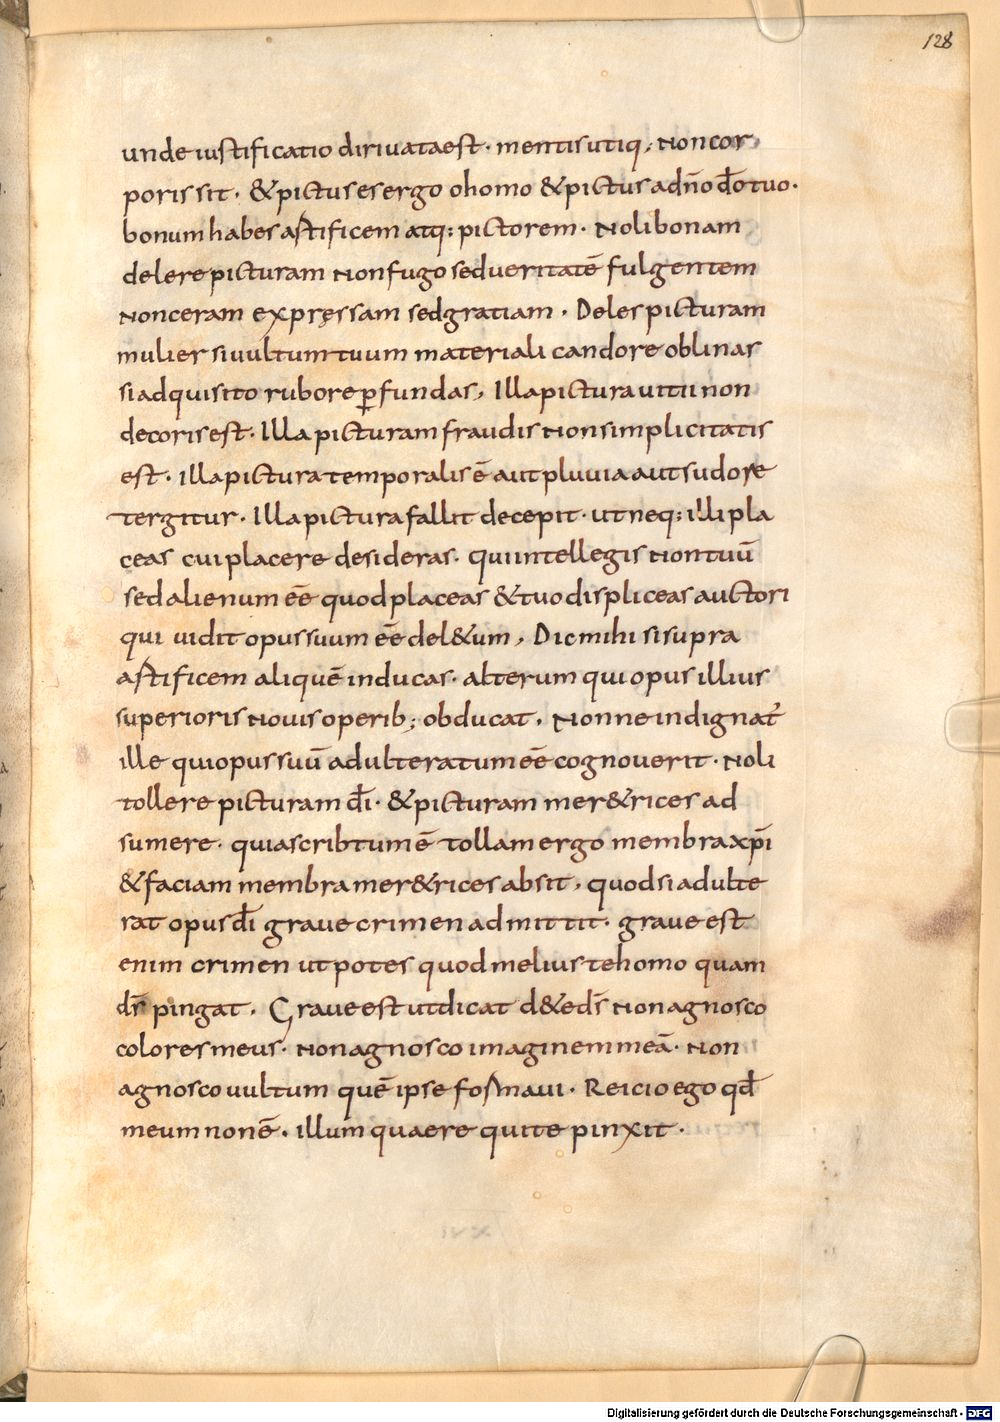 128
unde iustificatio dirivata est· mentis utiq; non cor
poris sit· & pictus es ergo o homo & pictus a dño dō tuo·
bonum habes astificem atq: pictorem· Noli bonam
delere picturam non fugo sed veritatē fulgentem
non ceram expręssam sed gratiam· Deles picturam
mulier si uultum tuum materiali candore oblinas
si adquisito rubore ꝑfundas, Illa pictura uitii non
decoris est· Illa picturam fraudis non simplicitatis
est· illa pictura temporalis ē aut pluuia aut sudore
tergitur· Illa pictura fallit decepit· ut neq: illi pla
ceas cui placere desideras· qui intellegis non tuū
sed alienum eē quod placeas & tuo displiceas auctori
qui uidit opus suum eē del&um, Dic mihi si supra
astificem aliquē inducas· alterum qui opus illius
superioris nouis operib; obducat, Nonne indignat̄
ille qui opus suū adulteratum eē cognouerit· Noli
tollere picturam dī· & picturam mer&rices ad
sumere· quia scribtum ē tollam ergo membra xp̄i
& faciam membra mer&rices absit, quod si adulte
rat opus dī graue crimen admittit· graue est
enim crimen ut potes quod melius te homo quam
ds̄ pingat, Graue est ut dicat d& e ds̄ non agnosco
colores meus· non agnosco imaginem meā· Non
agnosco uultum quē ipse fosmaui· Reicio ego qd̄
meum non ē· illum quaere qui te pinxit·
Digitalisierung gefördert durch die Deutsche Forschungsgemeinschaft - DFG